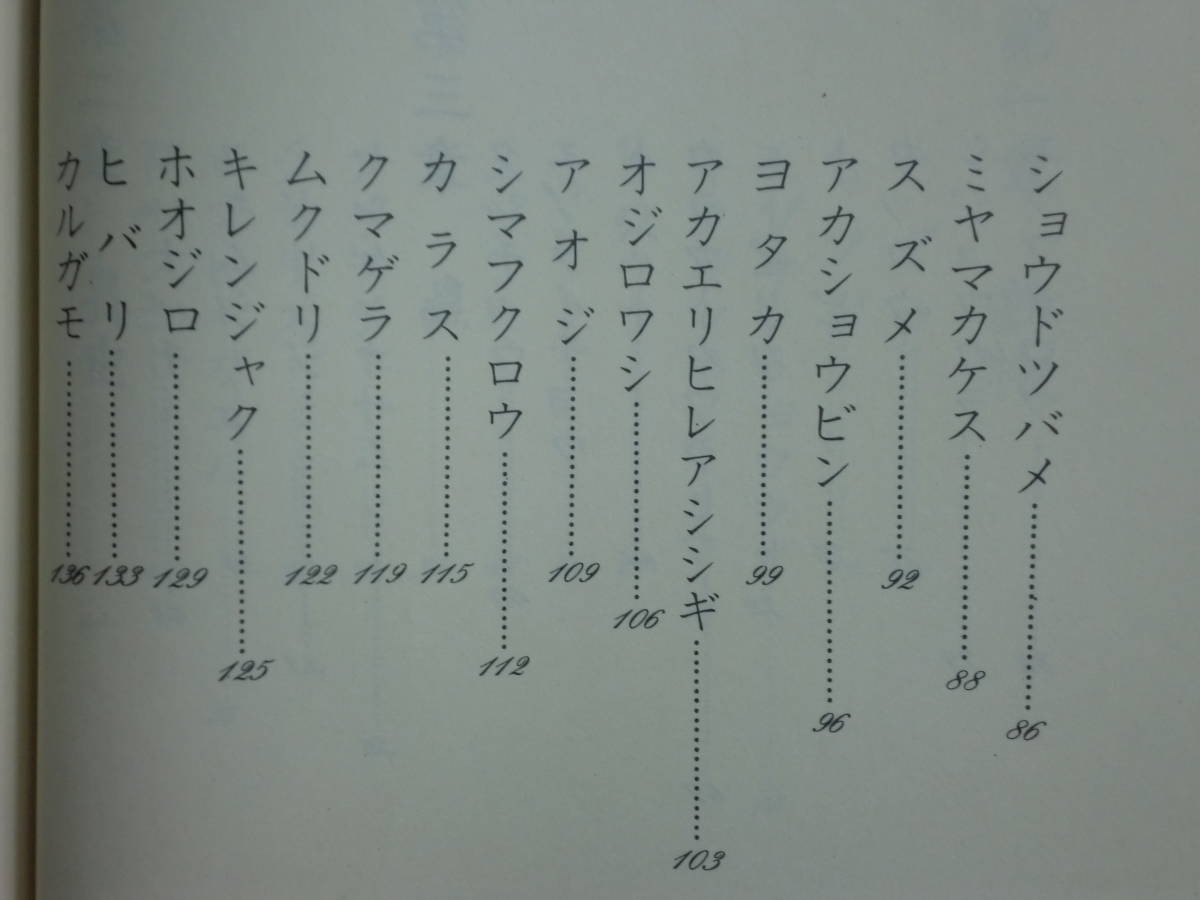 ショウドツバメ……………86
ミヤマカケス……………88
スズメ……………92
アカショウビン……………96
ヨタカ……………99
アカエリヒレアシシギ……………103
オジロワシ……………106
アオジ……………109
シマフクロウ……………112
カラス……………115
クマゲラ……………119
ムクドリ……………122
キレンジャク……………125
ホオジロ……………129
ヒバリ……………133
カルガモ……………136